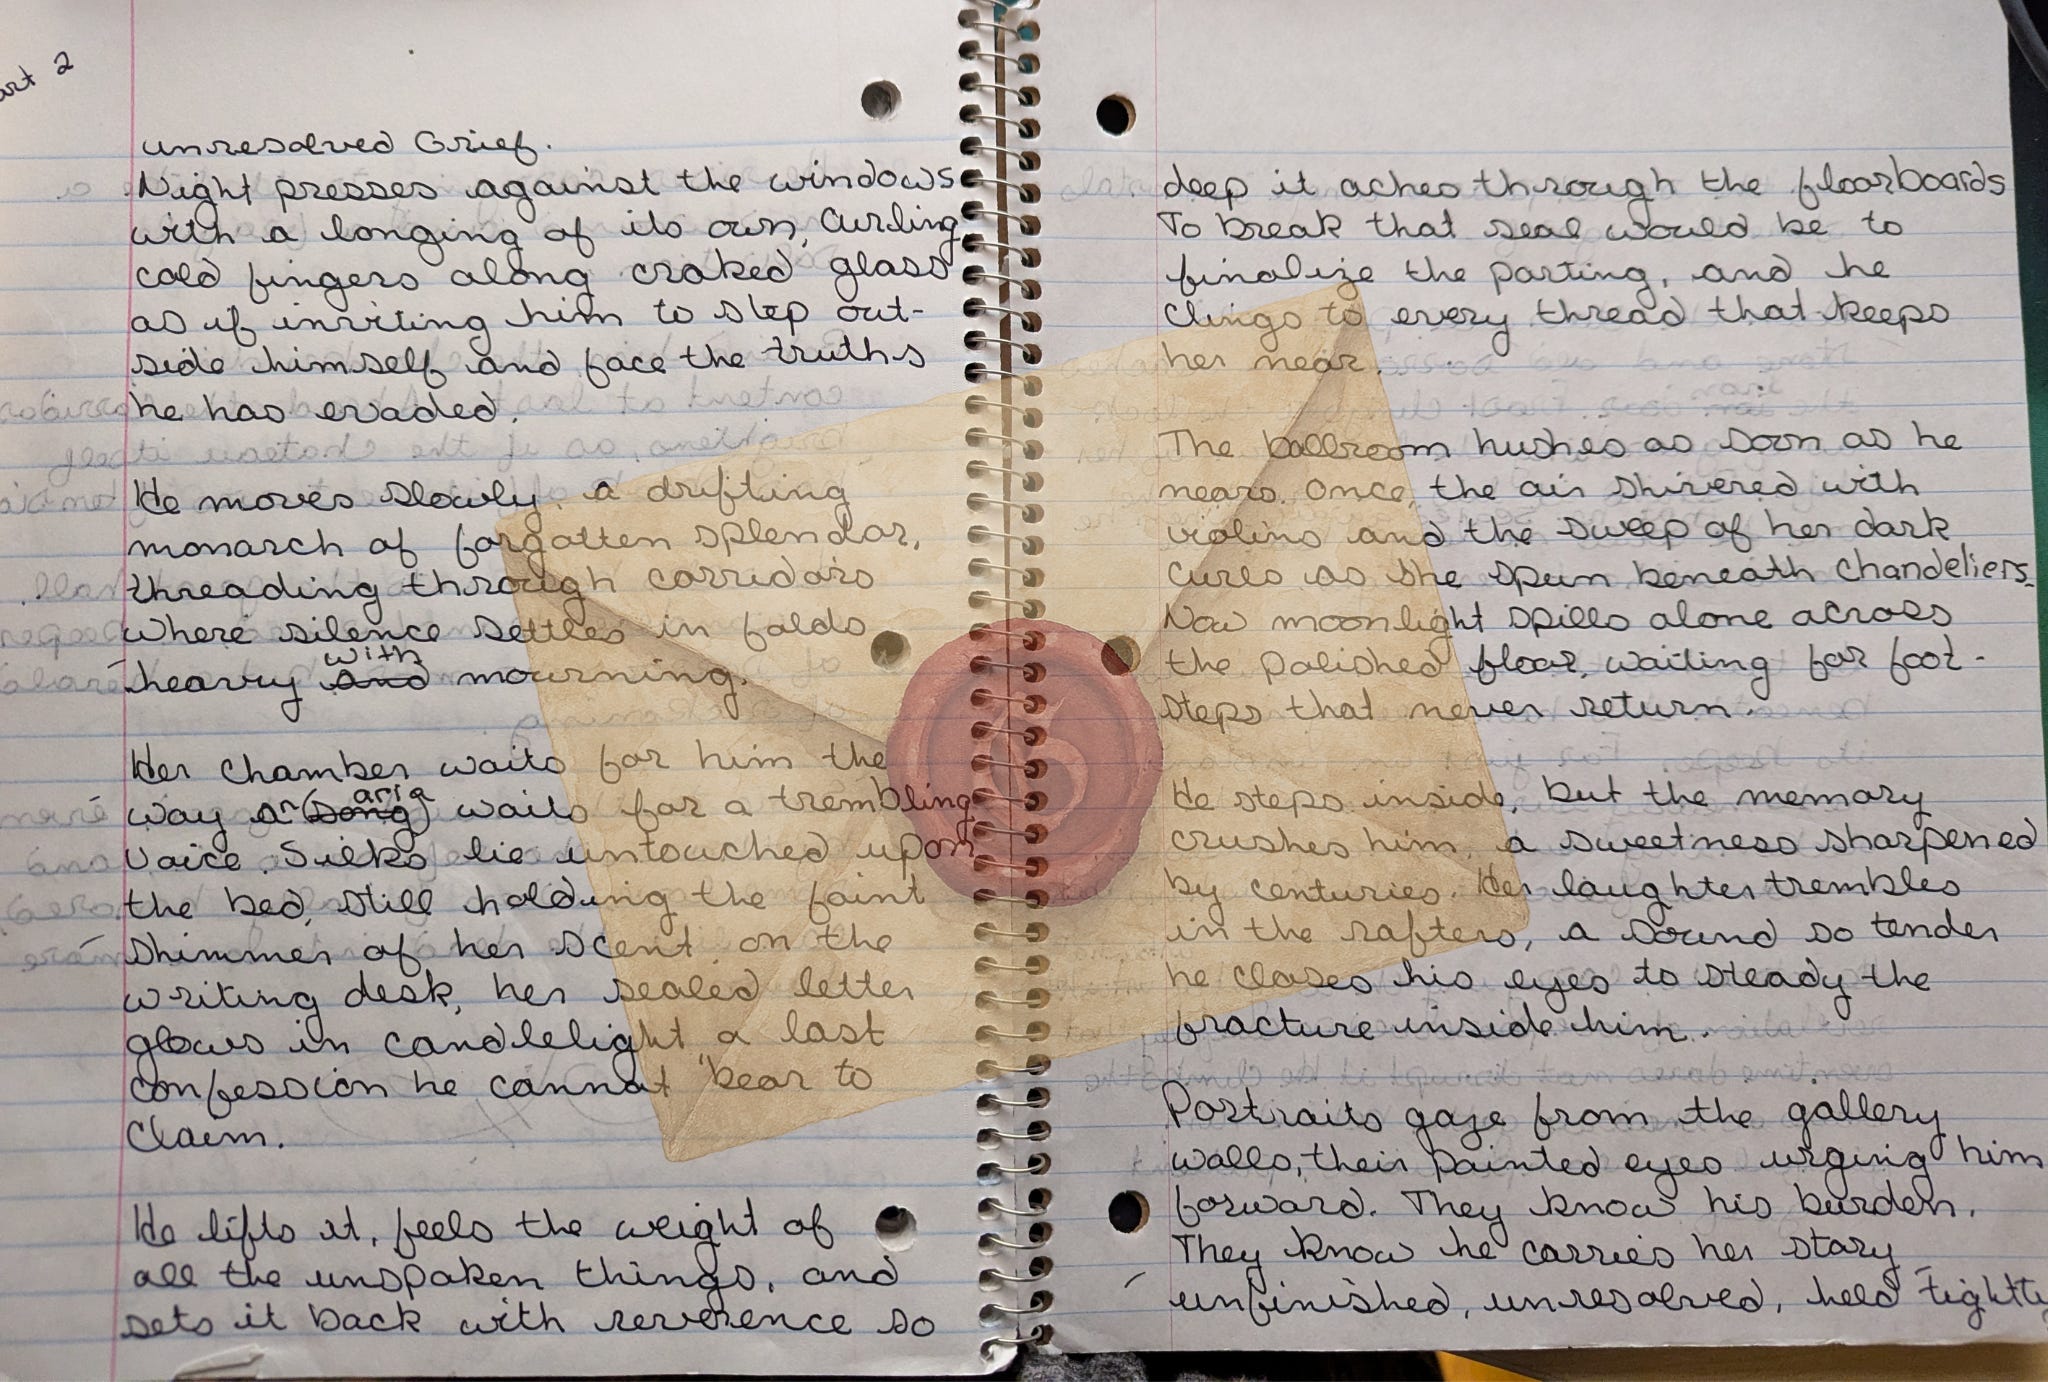 art 2
unresolved Grief.
Night presses against the windows
with a longing of its own, curling
cold fingers along craked glass
as if inviting him to step out-
side himself and face the truths
he has evaded.
He moves slowly, a drifting
monarch of forgotten splendor,
threading through corridors
where silence settles in folds
heavy and with mourning.
Her chamber waits for him the
way an (song) aria waits for a trembling
voice. Silks lie untouched upon
the bed, still holding the faint
shimmer of her scent. on the
writing desk, her sealed letter
glows in candlelight, a last
confession he cannot bear to
claim.
He lifts it, feels the weight of
all the unspoken things, and
sets it back with reverence so
deep it aches through the floorboards
To break that seal would be to
finalize the parting, and he
clings to every thread that keeps
her near.
The ballroom hushes as soon as he
nears. Once, the air shivered with
violins and the sweep of her dark
curls as she spun beneath chandeliers.
Now moonlight spills alone across
the polished floor, waiting for foot-
steps that never return.
He steps inside, but the memory
crushes him, a sweetness sharpened
by centuries. Her laughter trembles
in the rafters, a sound so tender
he closes his eyes to steady the
fracture inside him.
Portraits gaze from the gallery
walls, their painted eyes urging him
forward. They know his burden.
They know he carries her story
unfinished, unresolved, held tightly